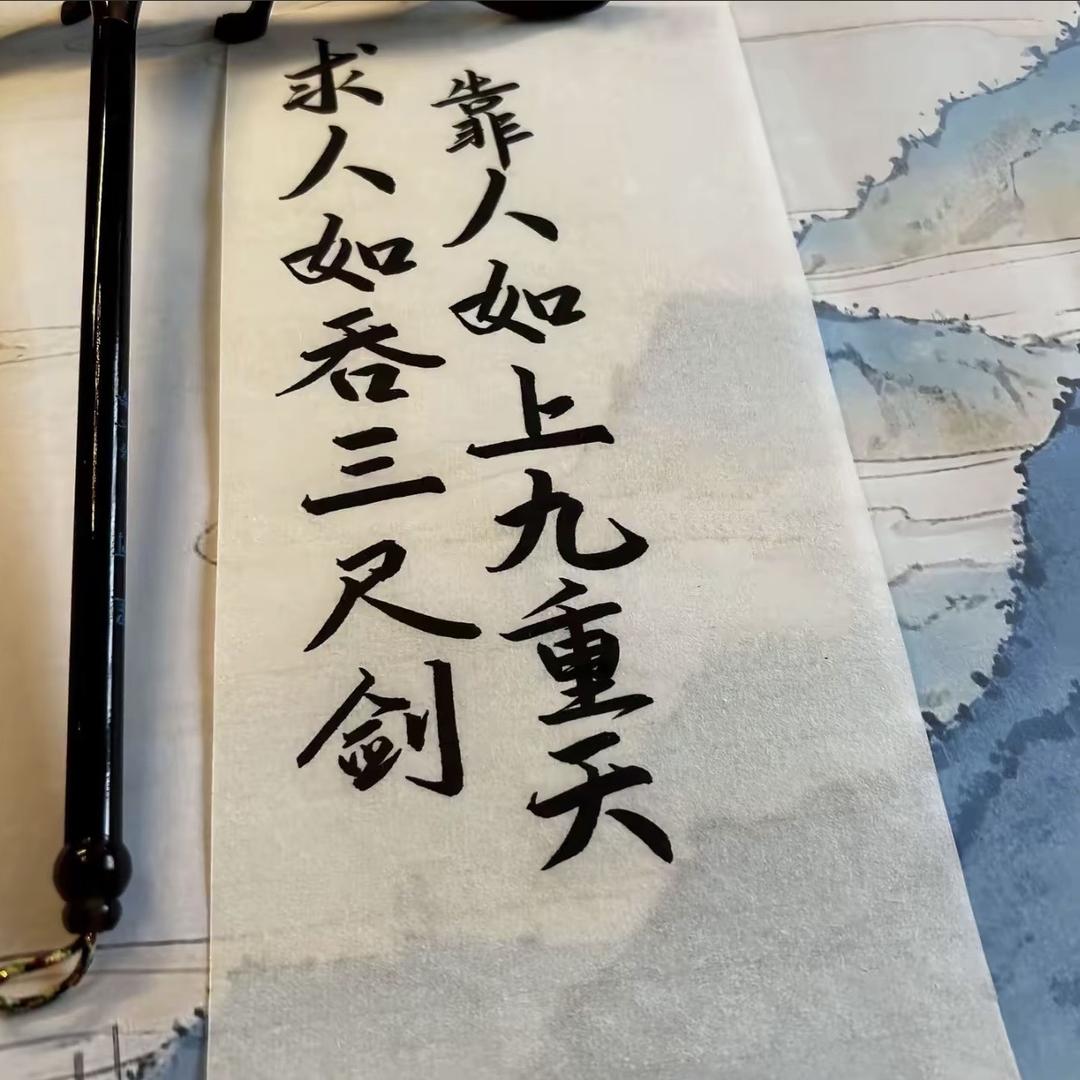 靠人如上九重天
求人如吞三尺剑